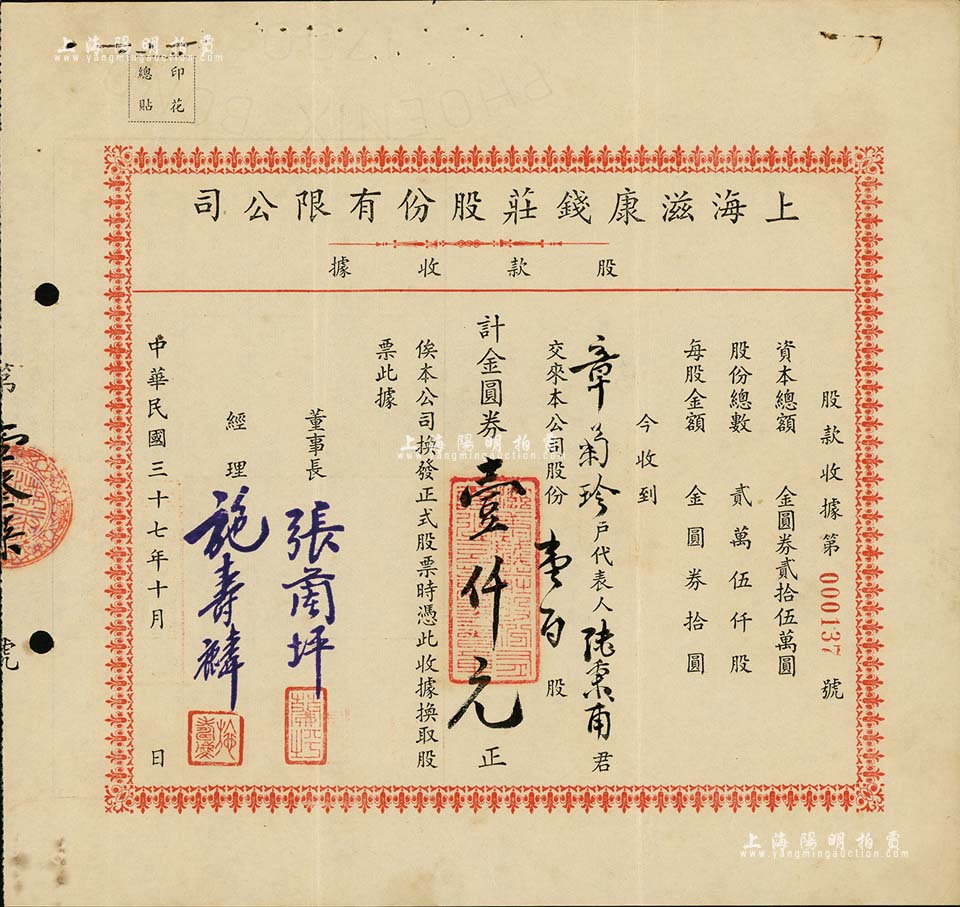 上海陽明拍賣
www.yangmingauction.com
印花
總貼
上海滋康錢莊股份有限公司
股款收據
股款收據第000137號
資本總額 金圓券貳拾伍萬圓
股份總數 貳萬伍仟股
每股金額 金圓券拾圓
今收到
章菊珍戶代表人陸東甫君
交來本公司股份壹百股
計金圓券壹仟元正
俟本公司換發正式股票時憑此收據換取股
票此據
董事長 張蘭坪
經理 施壽麟
中華民國三十七年十月 日
第
號
上海陽明拍賣
www.yangmingauction.com
上海陽明拍賣
www.yangmingauction.com